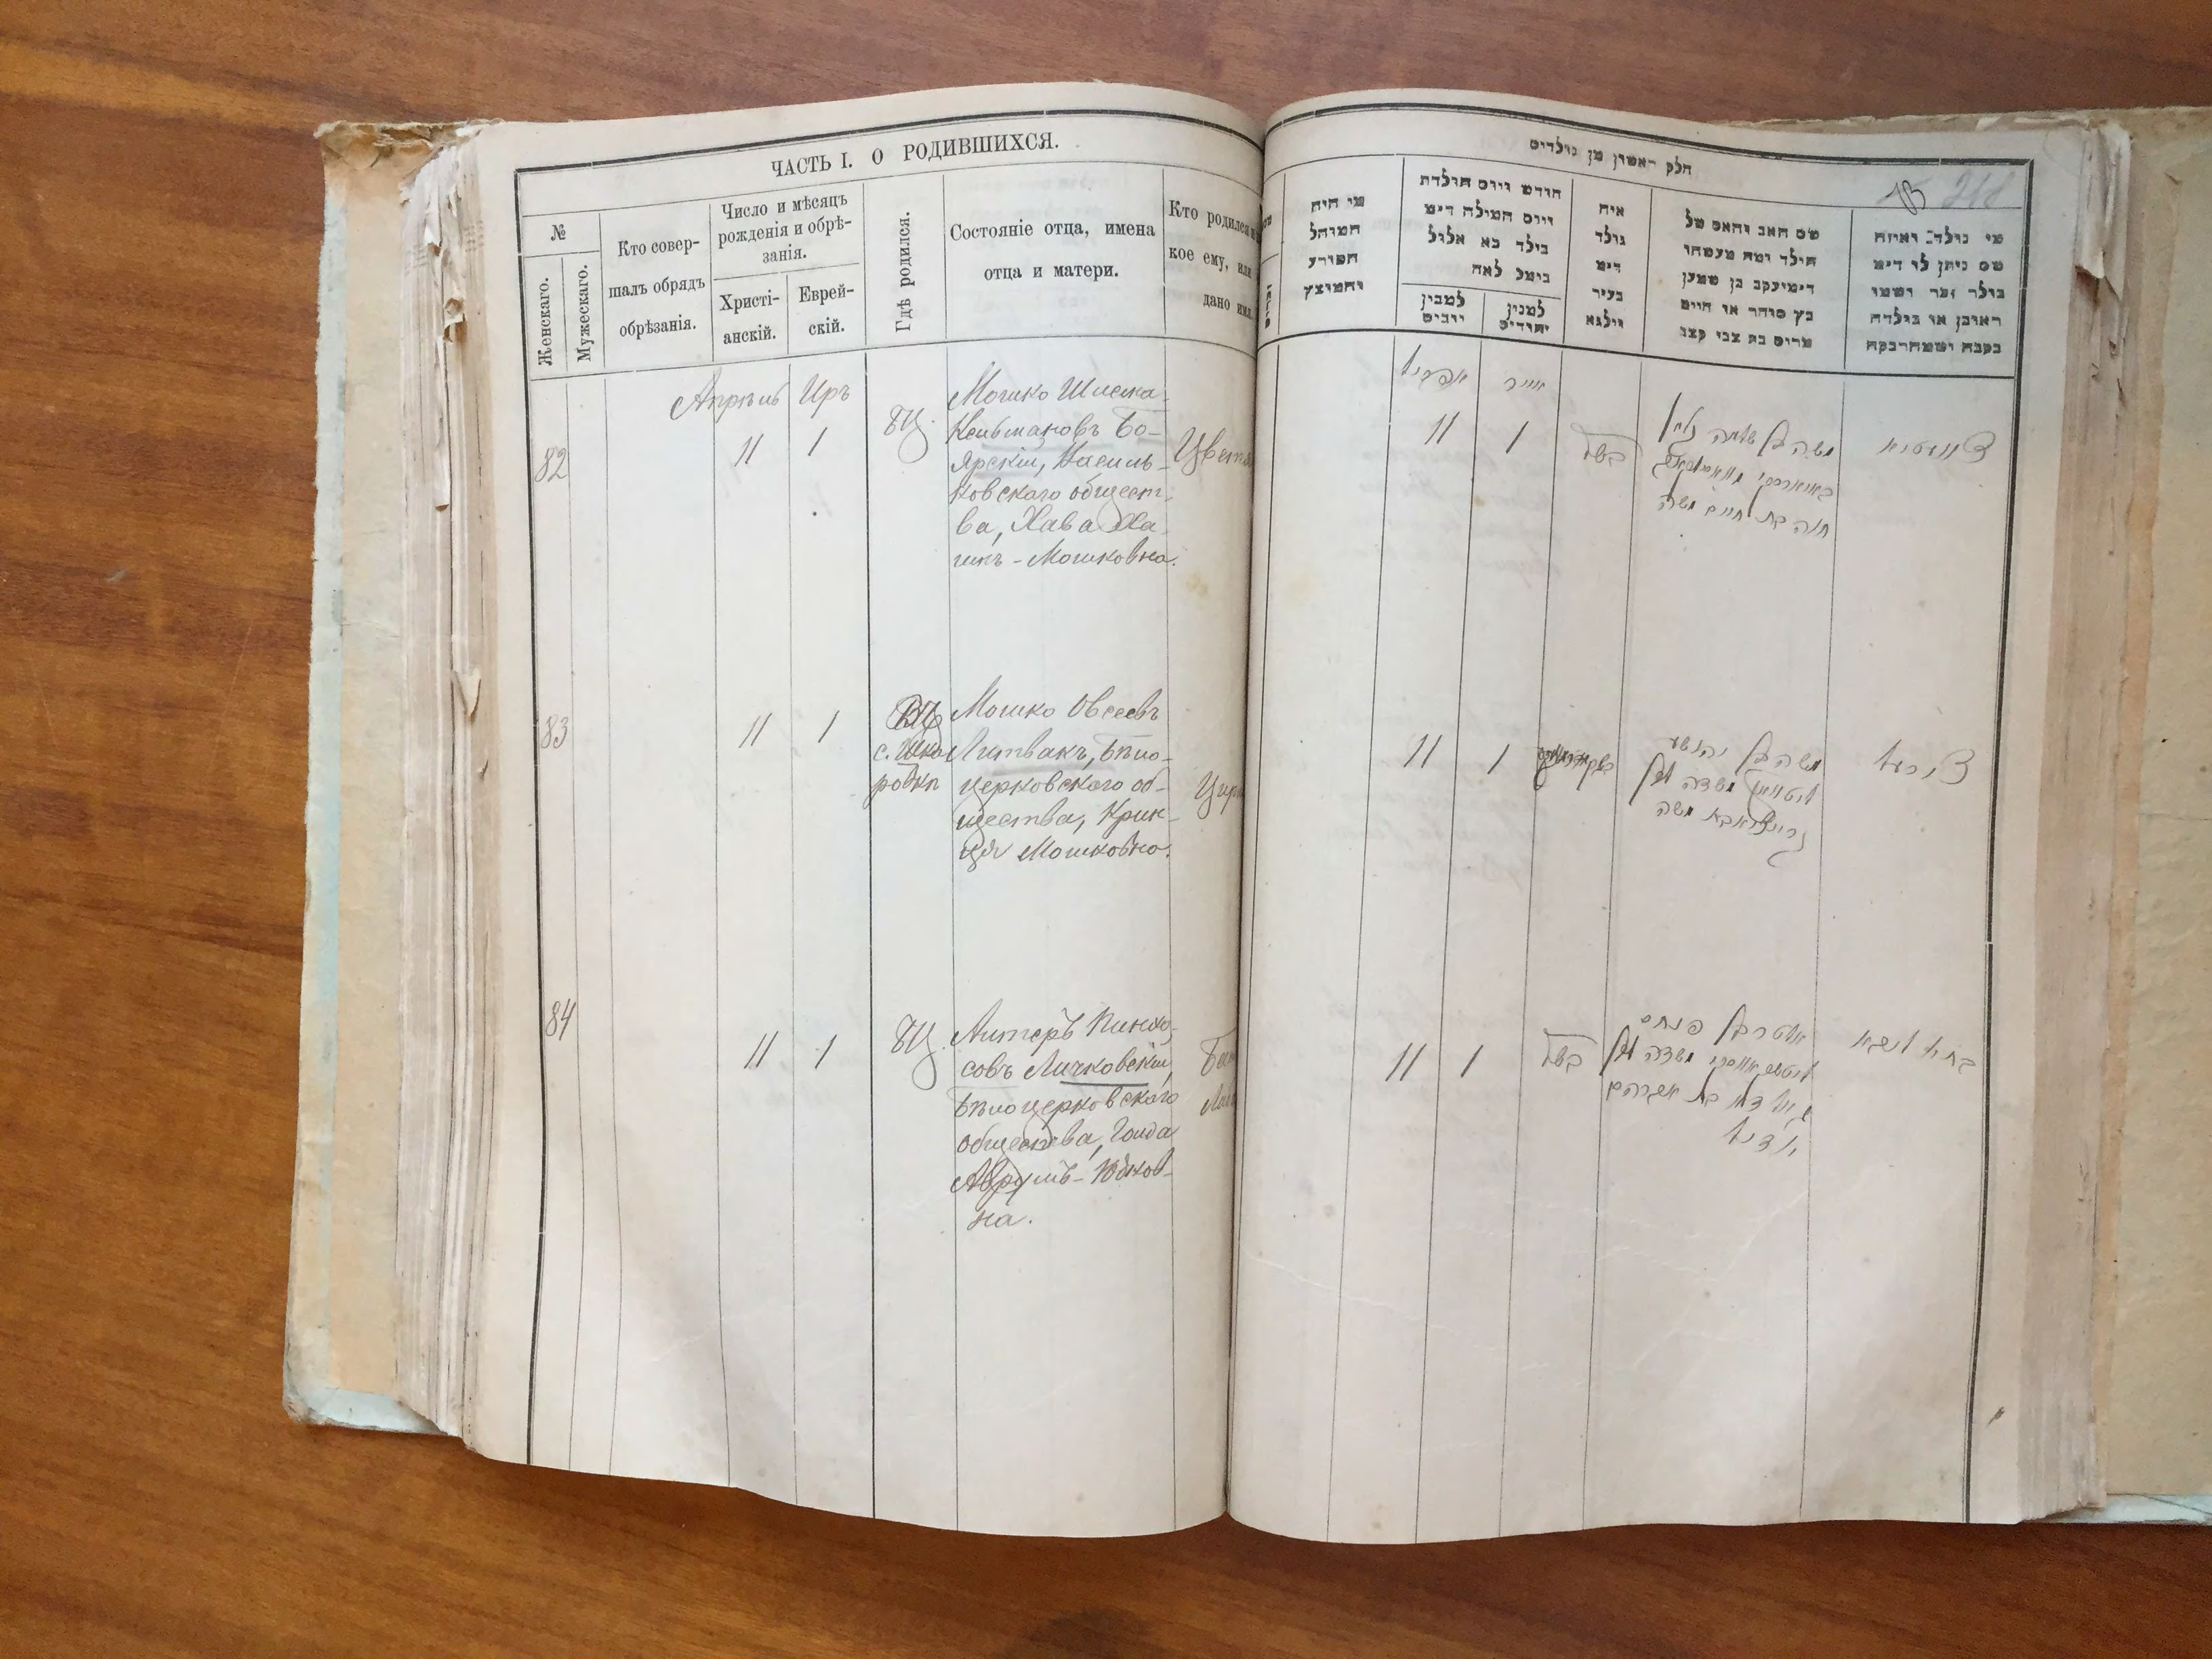 ЧАСТЬ I. О РОДИВШИХСЯ.
№
Женскаго.
Мужескаго.
Кто совер-
шалъ обрядъ
обрѣзанія.
Число и мѣсяцъ
рожденія и обрѣ-
занія.
Христі-
анскій.
Еврей-
скій.
Гдѣ родился.
Состояніе отца, имена
отца и матери.
Кто родился и
кое ему, или
дано имя
Апрѣль Иръ
82
11
1
БЦ.
Мошко Шлема-
Кельмановъ Бо-
ярскій, Василь-
ковскаго общест-
ва, Хава Ха-
имъ-Мошковна.
Цветя
83
11
1
с. Шка
ровки
Мошко Овсеевъ
Литвакъ, Бѣло-
церковскаго об-
щества, Крин-
ця Мошковна.
84
11
1
БЦ.
Алтеръ Пинхо-
совъ Личковскій,
Бѣлоцерковскаго
общества, Голда
Аврумъ-
на.
חלק ראשון מן נולדים
218
מי היה
המוהל
הפורע
והמוצץ
חודש ויום תולדת
ויום המילה דימ
בילד בא אלול
בימל לאה
למנין
יוניים
למנין
יהודים
איה
נולד
דימ
בעיר
ווילנא
שם האב והאם של
הילד ומה מעשהו
דימיעקב בן שמען
כץ סוחר או חיים
מרים בת צבי קצב
מי נולד ואיזה
שם ניתן לו דימ
בילד זכר ושמו
ראובן או בילדה
נקבה ושמה רבקה
אפריל
אייר
11
1
משה בן שלמה
חוה בת חיים משה
צוועטיא
11
1
משה בן יהושע
משה
צירעל
11
1
אלטר בן פנחס
בת אברהם